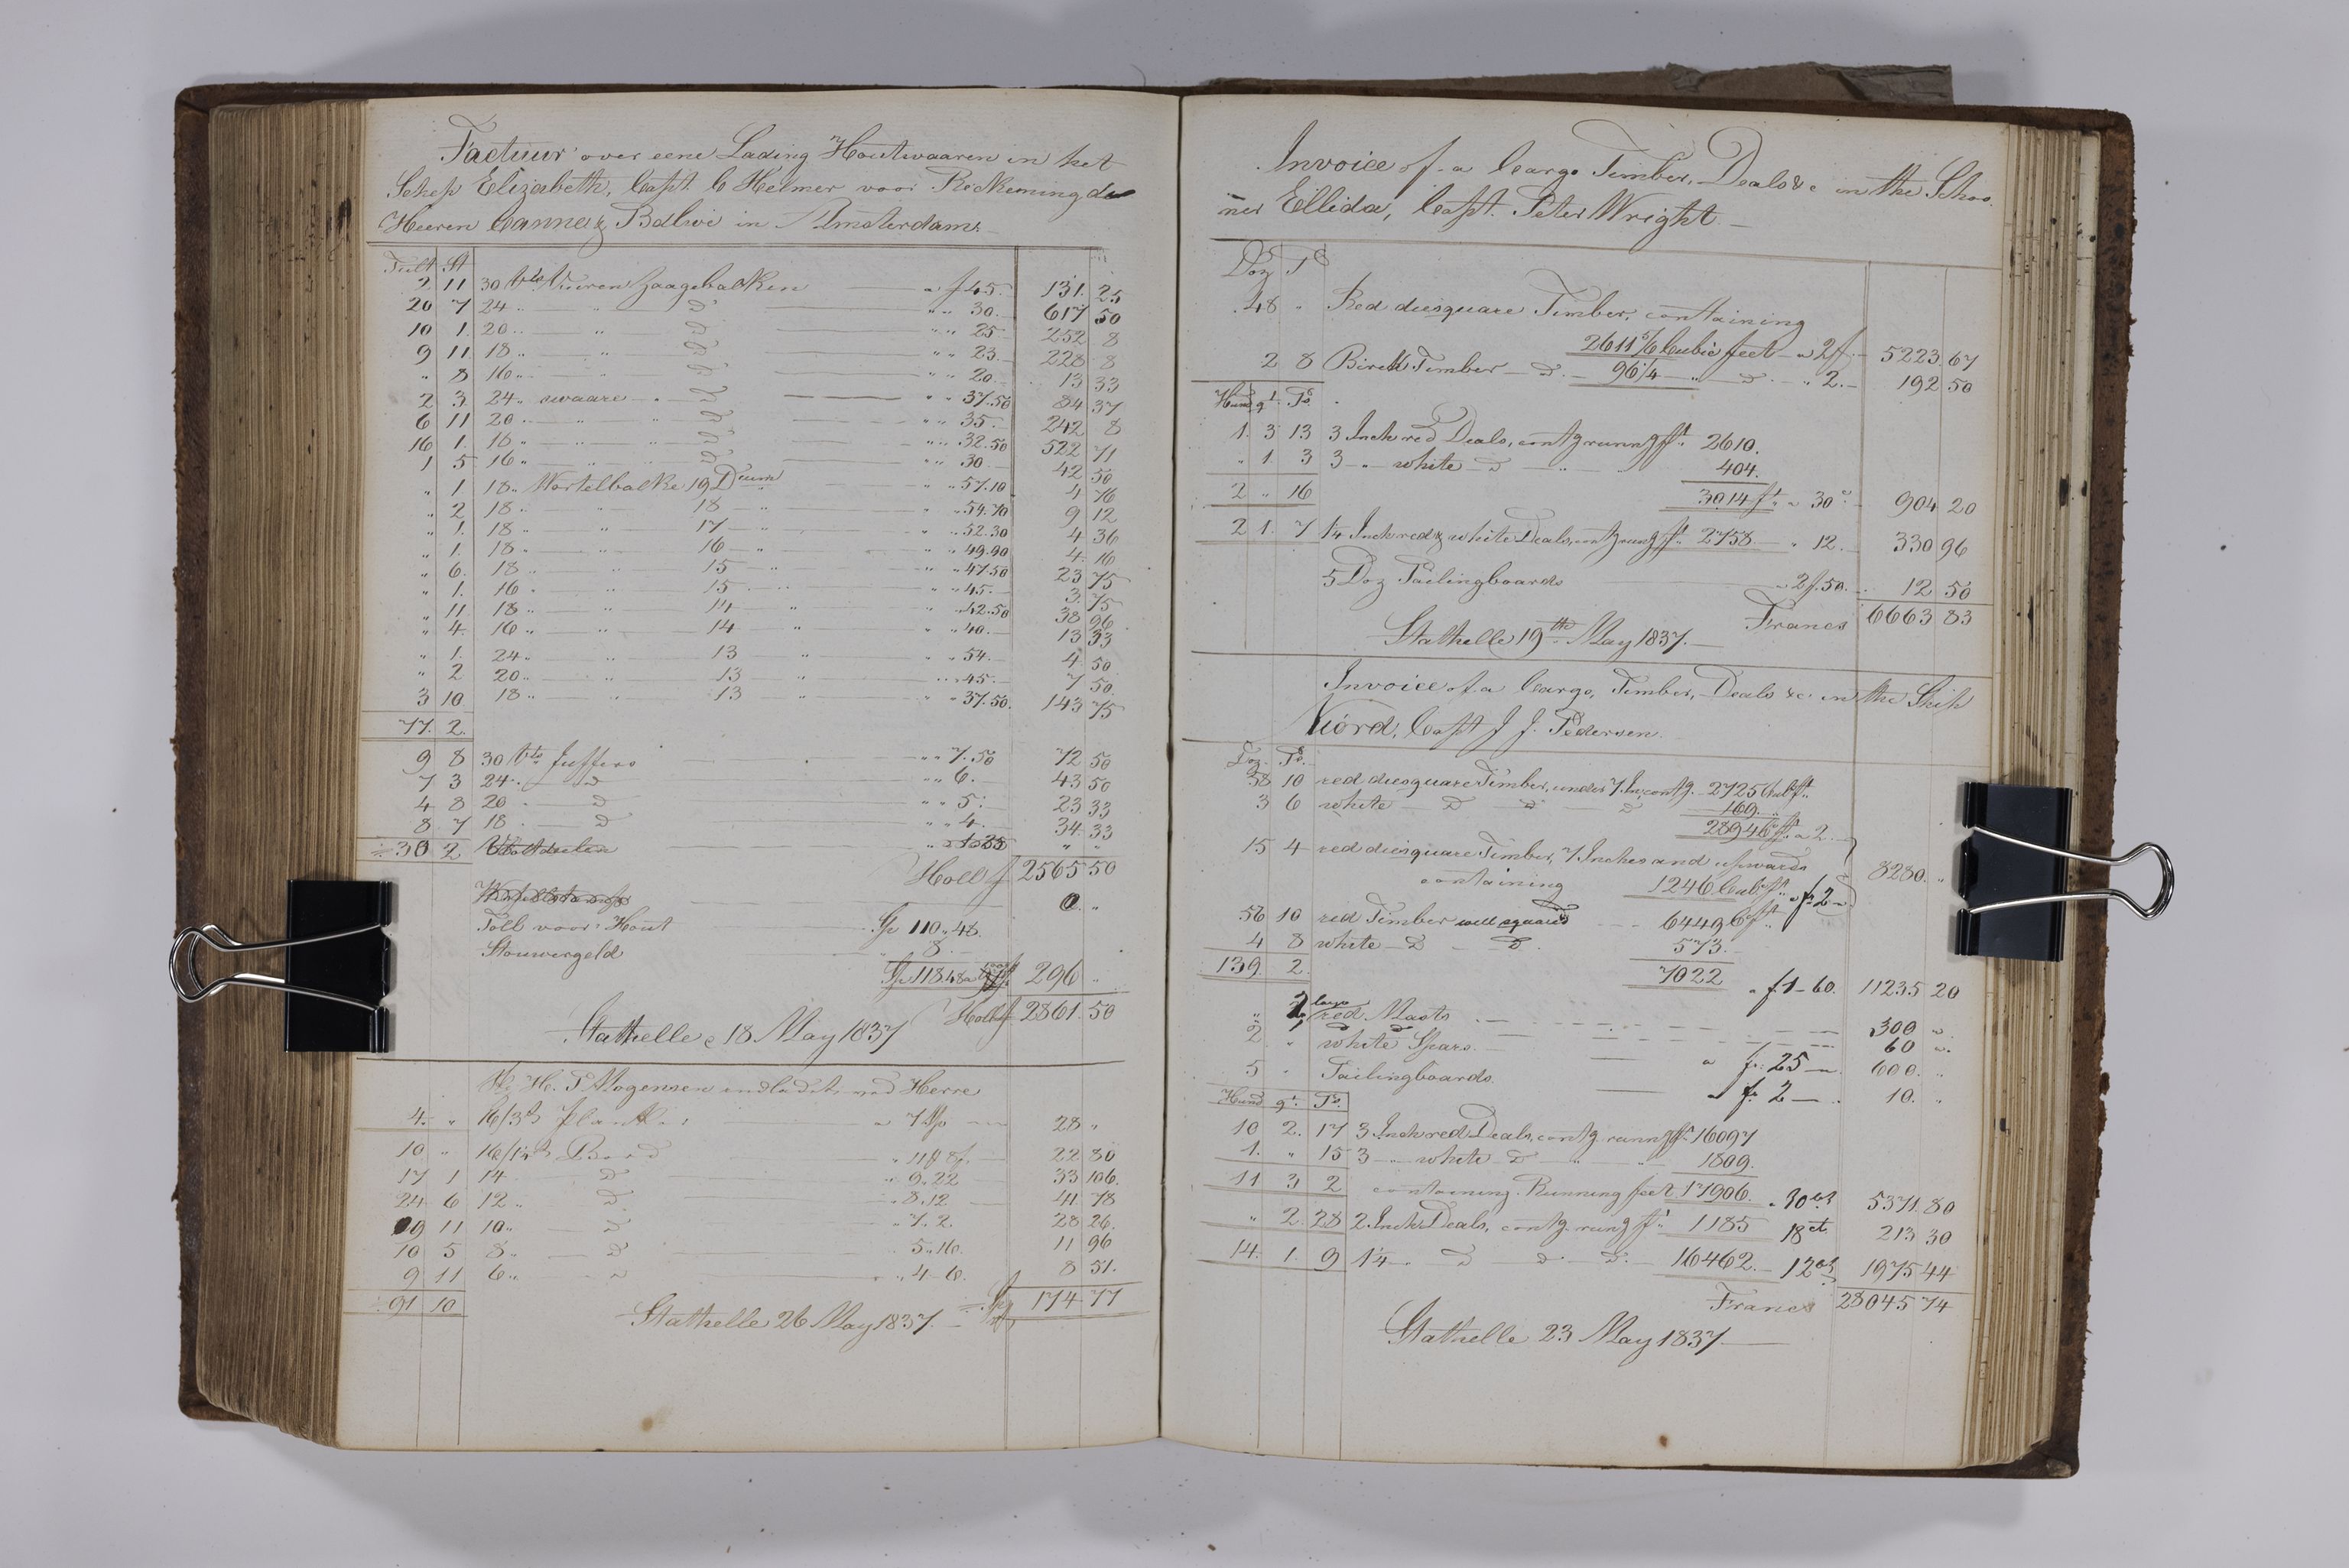 Factuur over eene Lading Houtwaaren in het
Schip Elizabeth, Capt. C Helmer voor Rekening de
Heeren Canne & Balwé in Amsterdam.
Tult St
2 11 30 vts Vuuren Zaagebalken a f 45. 131. 25
20 7 24 " " D " " 30. 617 50
10 1. 20 " " D " " 25 252 8
9 11 18 " " D " " 23. 228 8
" 8 16 " " D " " 20. 13 33
2 3. 24 " swaare " D " " 37.50 84 37
6 11 20 " " " D " " 35. 242 8
16 1. 18 " " " D " " 32.50 522 71
1 5 16 " " " D " " 30. 42 50
" 1 18 " Wortelbalke 19 Duim " " 57.10 4 76
" 2 18 " " 18 " " " 54.70 9 12
" 1. 18 " " 17 " " " 52.30 4 36
" 1. 18 " " 16 " " " 49.90 4. 16
" 6. 18 " " 15 " " " 47.50 23 75
" 1. 16 " " 15 " " " 45. 3. 75
" 11 18 " " 14 " " " 42.50 38 96
" 4. 16 " " 14 " " " 40. 13 33
" 1. 24 " " 13 " " " 54. 4 50
" 2 20 " " 13 " " " 45. 7 50
3 10 18 " " 13 " " " 37.50. 143 75
77. 2.
9 8 30 vts Juffers " " 7.50 72 50
7 3 24 " D " " 6. 43 50
4 8 20 " D " " 5. 23 33
8 7 18 " D " " 4. 34. 33
30 2 " "
Holl f 2565 50
0. "
Toll voor Hout Sp 110 " 48.
Stouwergeld " 8.
Sp 118.48 a 296 "
Holl f 2861. 50
Stathelle 18 May 1837
H. T Mogensen indladet ved Herre
4. " 16/3 Plank a 7 Sp 28 "
10 " 16/1¼ Bord " 22 80
17 1 14 D " 9.22 33 106.
24 6 12 " D " 8.12 41 78
9 11 10 " D " 7. 2. 28 26.
10 5 8 " D 5.16. 11 96
9 11 6 " D " 4 6. 8 51.
91 10 Sp 174 77
Stathelle 26 May 1837.
Invoice of a Cargo Timber, Deals &c in the Schoo
ner Ellida, Capt. Peter Wright
Doz Ps
48 " Red diesquare Timber, containing
2611 5/6 Cubic feet a 2 f. 5223 67
2 8 Birch Timber D. 96 1/4 " D. " 2. 192 50
Hund qt. Ps.
1. 3 13 3 Inch red Deals, contg runng ft. 2610.
" 1. 3 3 " white D " 404.
2 " 16 3014 ft a 30 c 904 20
2 1. 7 1¼ Inch red & white Deals, contg rung ft. 2758 " 12. 330 96
5 Doz Tailingboards a 2 f. 50. 12 50
Francs 6663 83
Stathelle 19th May 1837.
Invoice of a Cargo, Timber, Deals &c in the Ship
Niord, Capt J J. Pedersen.
Doz. Ps.
38 10 red diesquare Timber, under 7 In, contg. 2725 Cub ft.
3 6 white D D D 169. "
2894 Cft. a 2.
15 4 red diesquare Timber, 7 Inches and upwards
containing 1246 Cub. ft. a f. 2 8280. "
56 10 red Timber well squared 6449 Cft.
4 8 white D D. 573.
139. 2. 7022 a f. 1 60. 11235 20
" 2 large red Masts 300 "
" 1 D D 60 "
2 " white Spars. a f. 25 600. "
5 " Tailingboards. a f. 2 10. "
Hund qt. Ps.
10 2. 17 3 Inch red Deals, contg. runng ft. 16097
1. " 15 3 " white D " " 1809.
11 3 2 containing Running feet 17906. a 30 cts 5371. 80
" 2. 28 2 Inch Deals, contg rung ft. 1185 18 ct. 213 30
14. 1. 9 1¼ D D D. 16462. 12 cts 1975 44
Francs 28045 74
Stathelle 23 May 1837